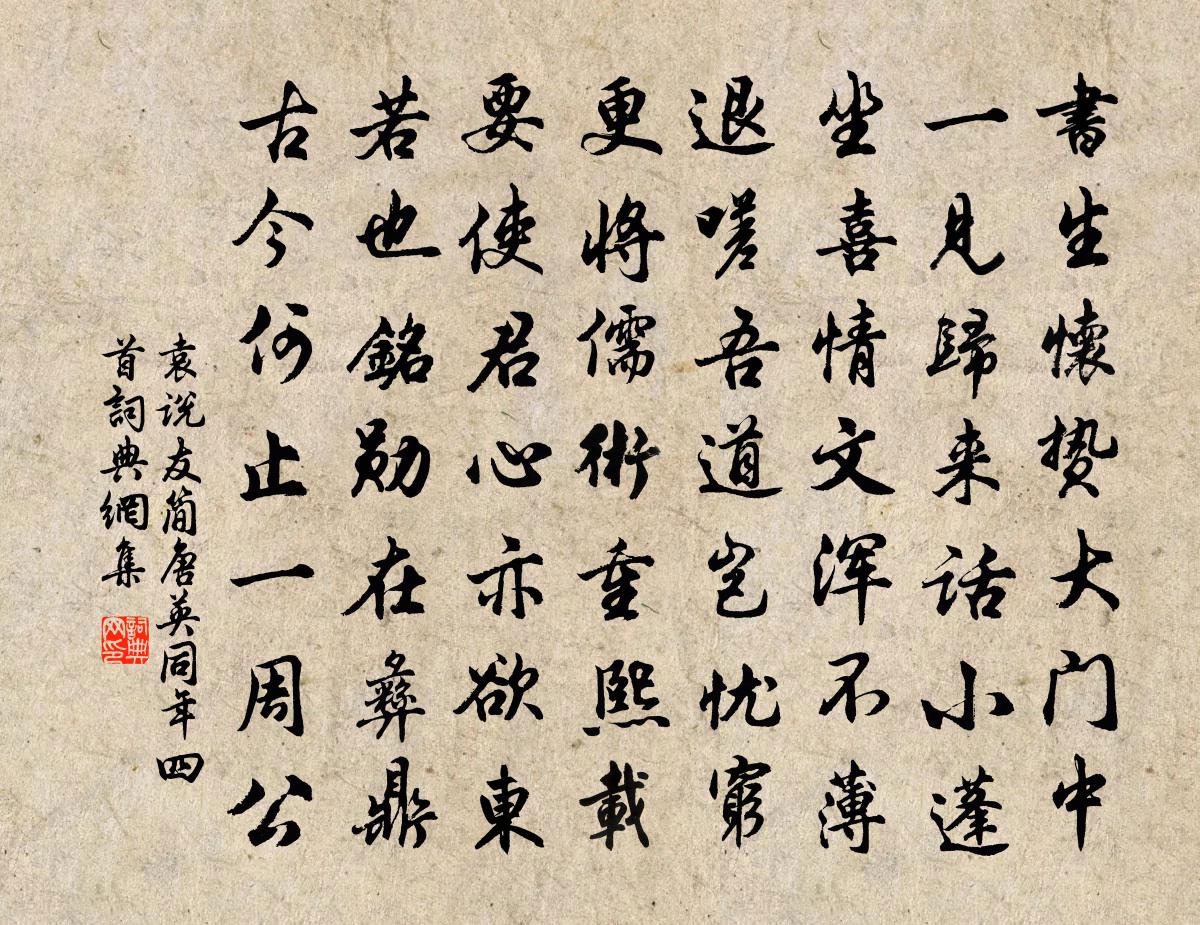 書生懷贽大门中
一見歸来話小蓬
坐喜情文浑不薄
退嗟吾道岂忧窮
更將儒術重熙載
要使君心亦欲東
若也銘勋在彝鼎
古今何止一周公
袁说友简唐英同年四
首詞典網集
詞典网印